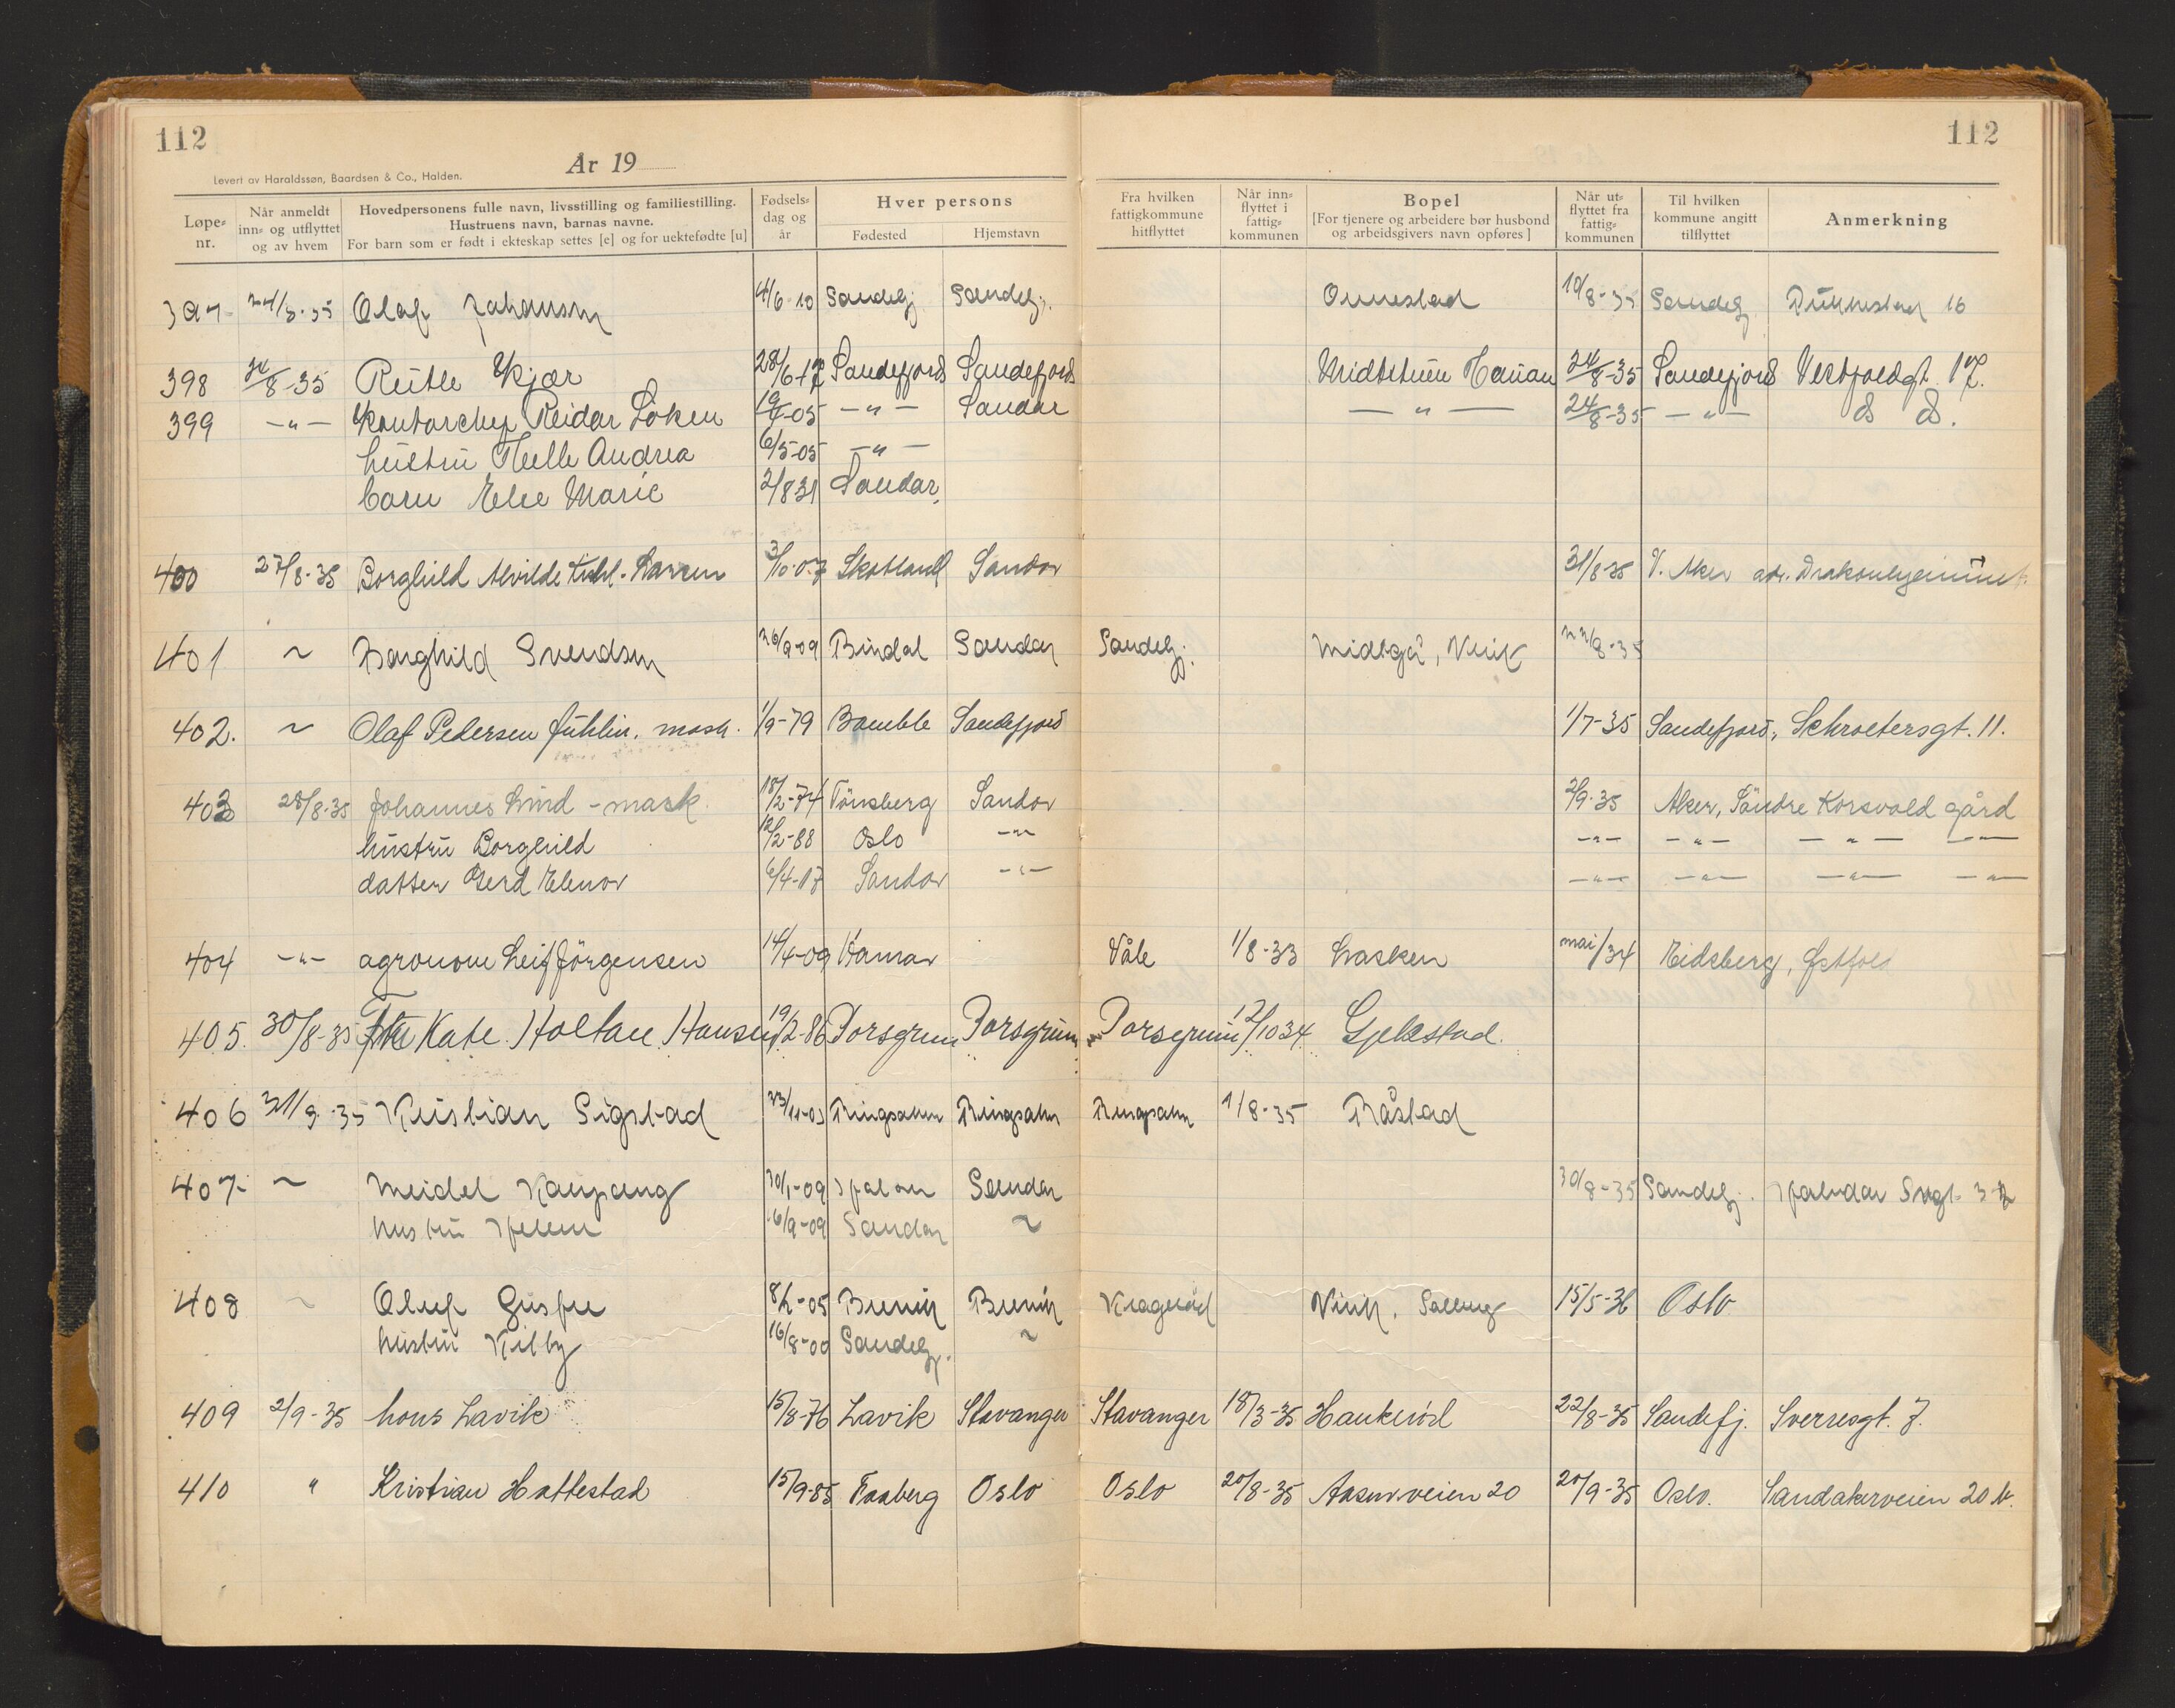 112
112
År 19
Levert av Haraldssøn, Baardsen & Co., Halden.
Løpe-nr. Når anmeldt inn- og utflyttet og av hvem Hovedpersonens fulle navn, livsstilling og familiestilling. Hustruens navn, barnas navne. For barn som er født i ekteskap settes [e] og for uektefødte [u] Fødsels-dag og år Hver persons Fødested Hjemstavn Fra hvilken fattigkommune hitflyttet Når inn-flyttet i fattig-kommunen Bopel [For tjenere og arbeidere bør husbond og arbeidsgivers navn opføres] Når ut-flyttet fra fattig-kommunen Til hvilken kommune angitt tilflyttet Anmerkning
397 24/8-35 Olaf Johansen 4/6-10 Sandefj. Sandefj. Onnestad 10/8-35 Sandefj. 16
398 24/8-35 Ruth Skjær 28/6-17 Sandefjord Sandefjord Midtstuen Hauan 24/8-35 Sandefjord Vestfoldgt. 17.
399 -"- Kontorchef Reidar Löken -05 -"- Sandar -"- 24/8-35 -"- do do.
hustru Helle Andrea 6/5-05 -"-
barn Else Marie 2/8 31 Sandar.
400 27/8-35 Borghild Alvilde Kihl-Larsen 3/10-07 Skotland Sandar 31/8-35 V. Aker adr. Drakonhjemmet
401 ~ Borghild Svendsen 26/9-09 Bindal Sandar Sandefj. Midtgå, Virik 22/8-35
402. ~ Olaf Pedersen Juhlin. mask. 1/9-79 Bamble Sandefjord 1/7-35 Sandefjord, Schroetersgt. 11.
403 28/8-35 Johannes Lund - mask. 18/2-74 Tönsberg Sandar 2/9-35 Aker, Söndre Korsvold gård
hustru Borghild 12/2-88 Oslo -"- -"- -"- -"- -"-
datter Gerd Elenor 6/4-17 Sandar -"- -"- -"- -"- -"-
404 -"- agronom Leif Jörgensen 14/4-09 Hamar Våle 1/8-33 Lasken mai/34 Eidsberg, Østfold
405. 30/8-35 Frk Kate Holtan Hansen 19/2-86 Porsgrun Porsgrunn Porsgrunn 12/10 34 Gjekstad.
406 31/8-35 Kristian Sigstad 23/11-03 Ringsaker Ringsaker Ringsaker 1/8-35 Råstad
407 ~ Meidel Kaupang 30/1-09 Sandar 30/8-35 Sandefj. Halvdan Svgt. 3
hustru Helene 6/9-09 Sandar ~
408 ~ Oluf Gusfre 8/2-05 Brevik Brevik Kragerød Virik, Solberg 15/5-36 Oslo
hustru Kitty 16/8-00 Sandefj. ~
409 2/9-35 Lons Lavik 15/8-76 Lavik Stavanger Stavanger 18/3-35 Haukerød 22/8-35 Sandefj. Sverresgt. 7.
410 " Kristian Hattestad 15/9-85 Faaberg Oslo Oslo 20/8-35 Aasenveien 20 20/9-35 Oslo. Sandakerveien 20